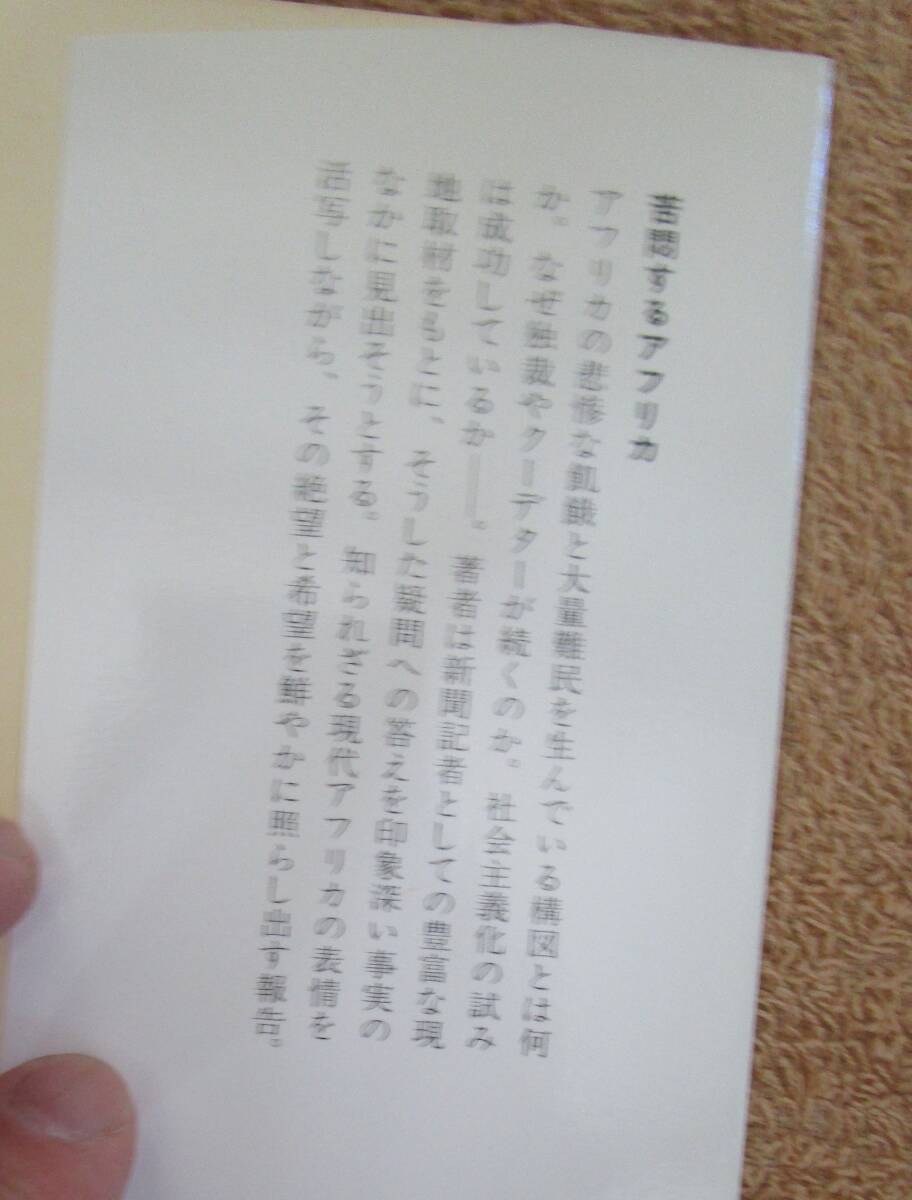 苦悶するアフリカ
アフリカの悲惨な飢餓と大量難民を生んでいる構図とは何
か。なぜ独裁やクーデターが続くのか。社会主義化の試み
は成功しているか――。著者は新聞記者としての豊富な現
地取材をもとに、そうした疑問への答えを印象深い事実の
なかに見出そうとする。知られざる現代アフリカの表情を
活写しながら、その絶望と希望を鮮やかに照らし出す報告。